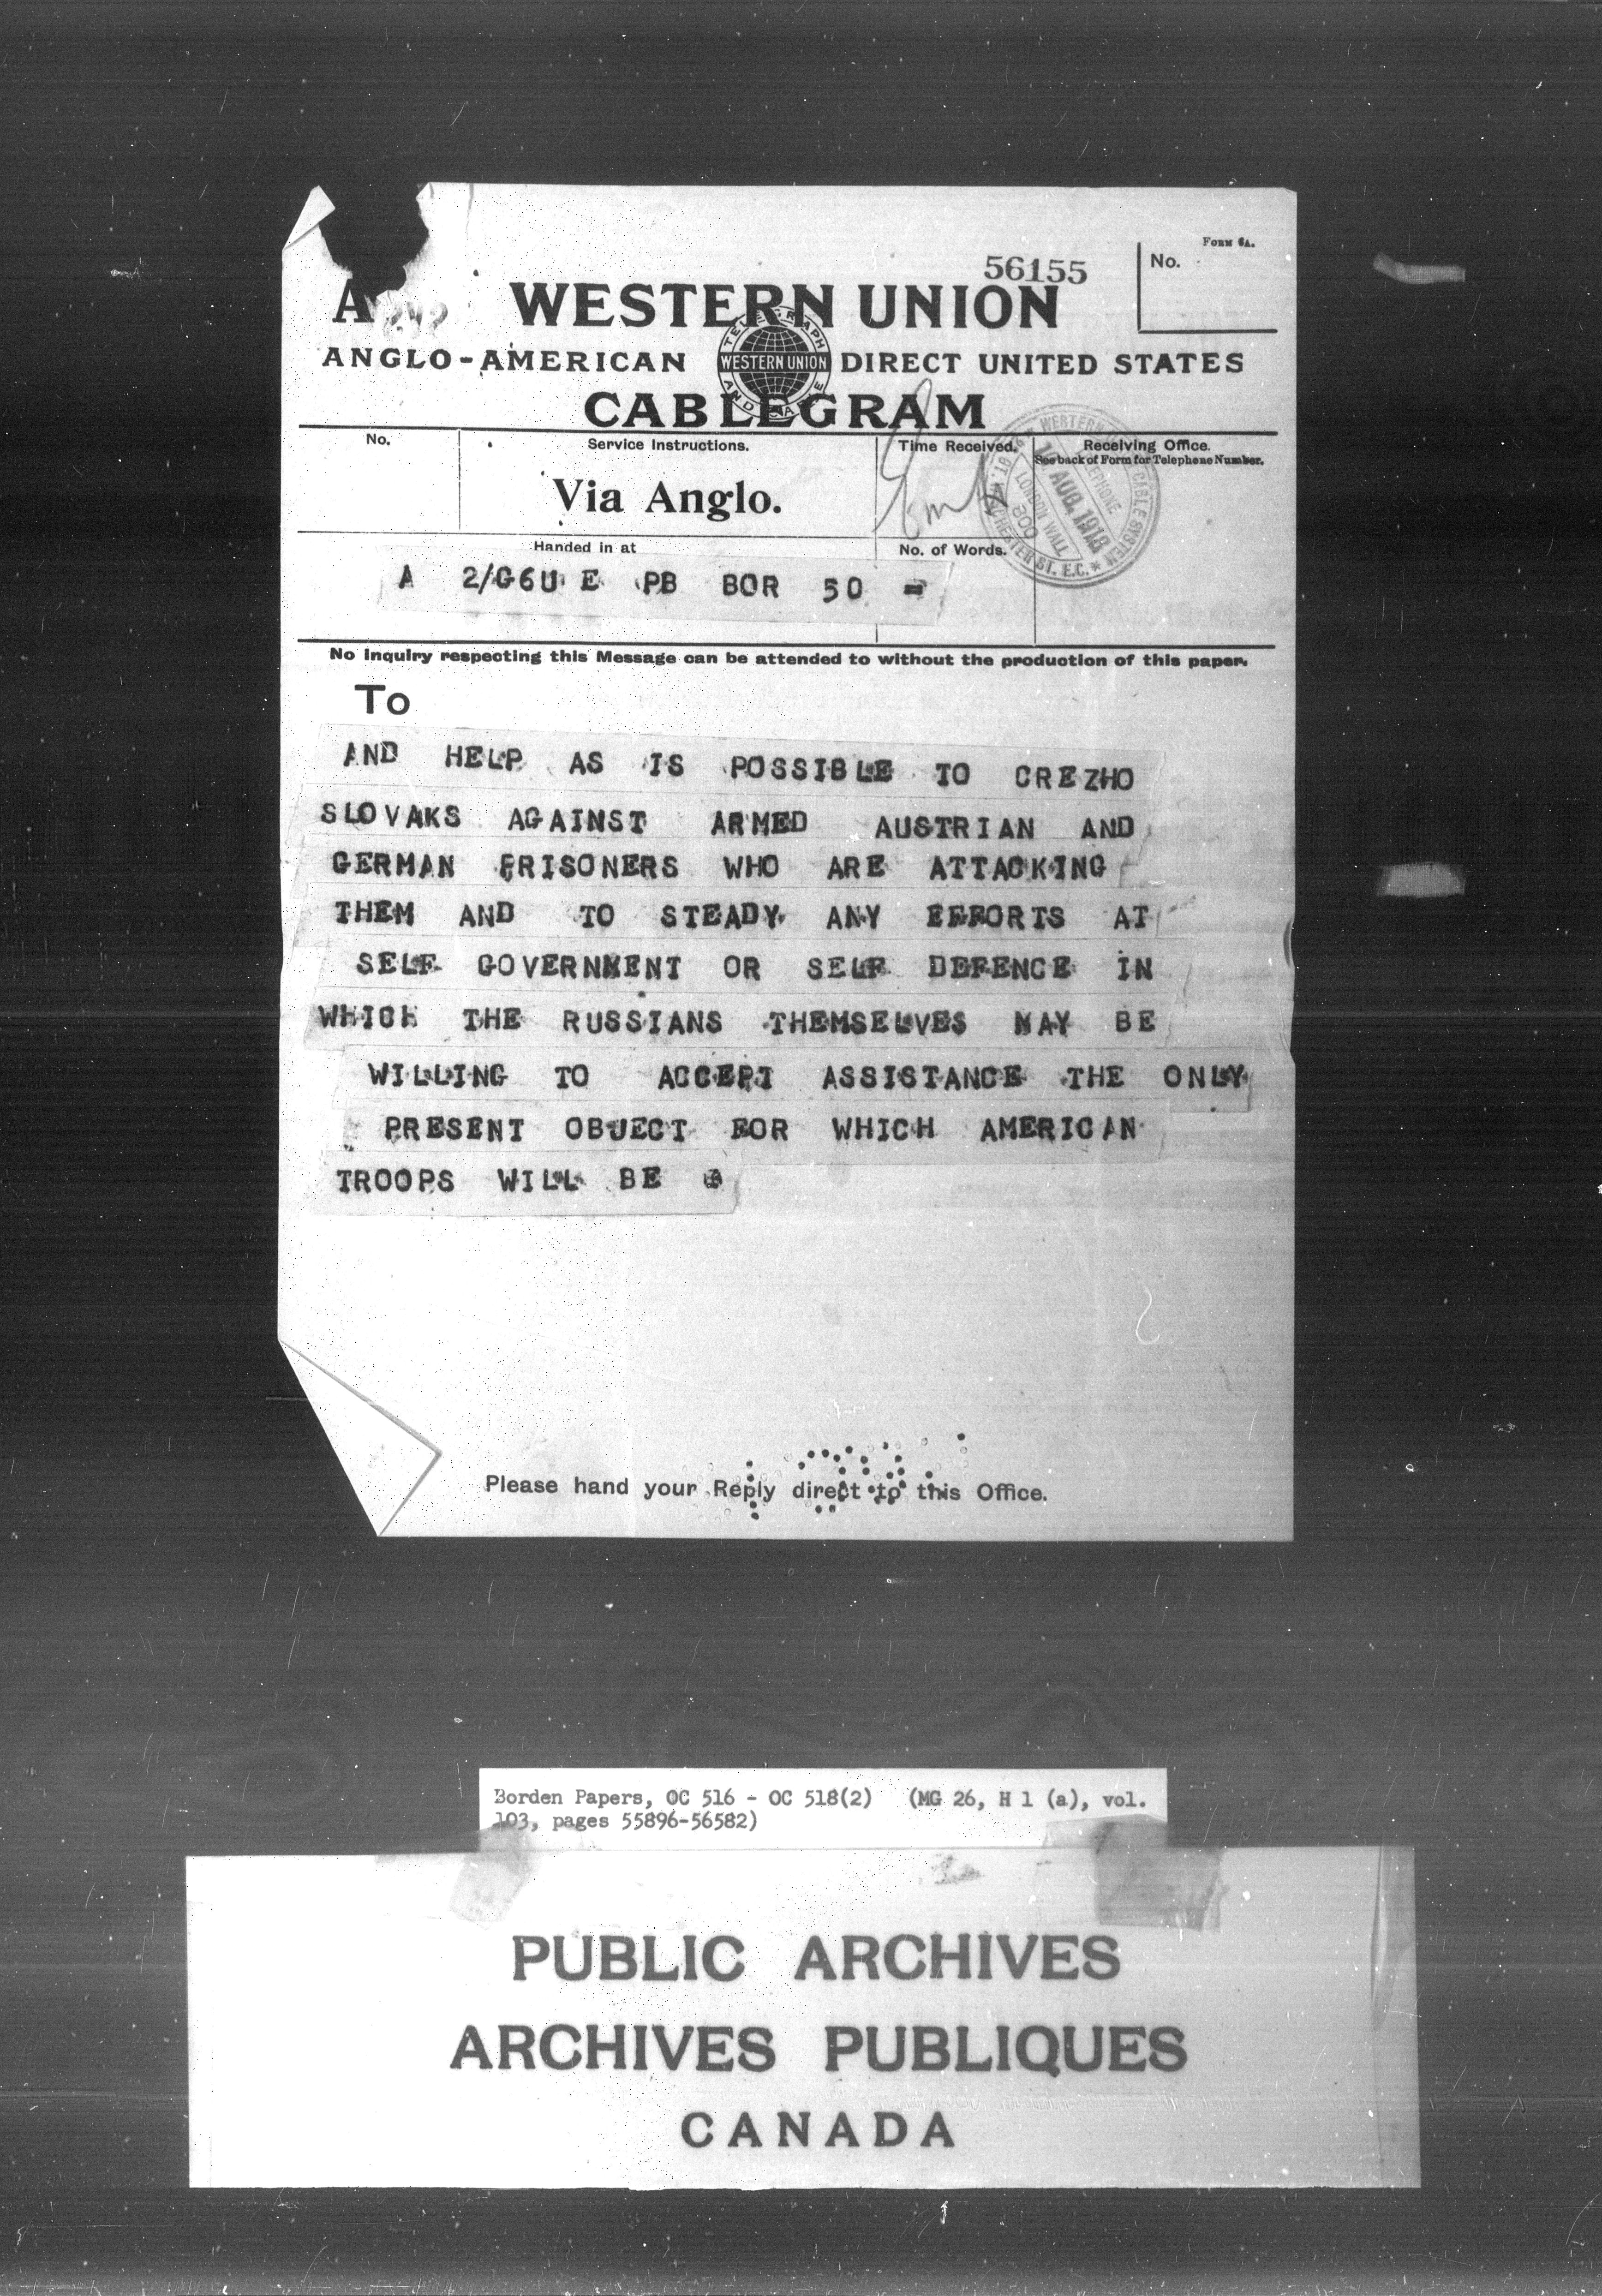 Form 6A.
56155
No.
A
WESTERN UNION
ANGLO-AMERICAN DIRECT UNITED STATES
TELEGRAPH
WESTERN UNION
AND CABLE
CABLEGRAM
No.
Service Instructions.
Time Received.
Receiving Office.
See back of Form for Telephone Number.
Via Anglo.
WESTERN CABLE SYSTEM
TELEPHONE
AUG. 1918
LONDON WALL
300
ST. E.C.
Handed in at
No. of Words.
A 2/G6U E PB BOR 50 =
No inquiry respecting this Message can be attended to without the production of this paper.
To
AND HELP AS IS POSSIBLE TO CREZHO
SLOVAKS AGAINST ARMED AUSTRIAN AND
GERMAN PRISONERS WHO ARE ATTACKING
THEM AND TO STEADY ANY EFFORTS AT
SELF GOVERNMENT OR SELF DEFENCE IN
WHICH THE RUSSIANS THEMSELVES MAY BE
WILLING TO ACCEPT ASSISTANCE THE ONLY
PRESENT OBJECT FOR WHICH AMERICAN
TROOPS WILL BE
Please hand your Reply direct to this Office.
Borden Papers, OC 516 - OC 518(2) (MG 26, H 1 (a), vol.
103, pages 55896-56582)
PUBLIC ARCHIVES
ARCHIVES PUBLIQUES
CANADA